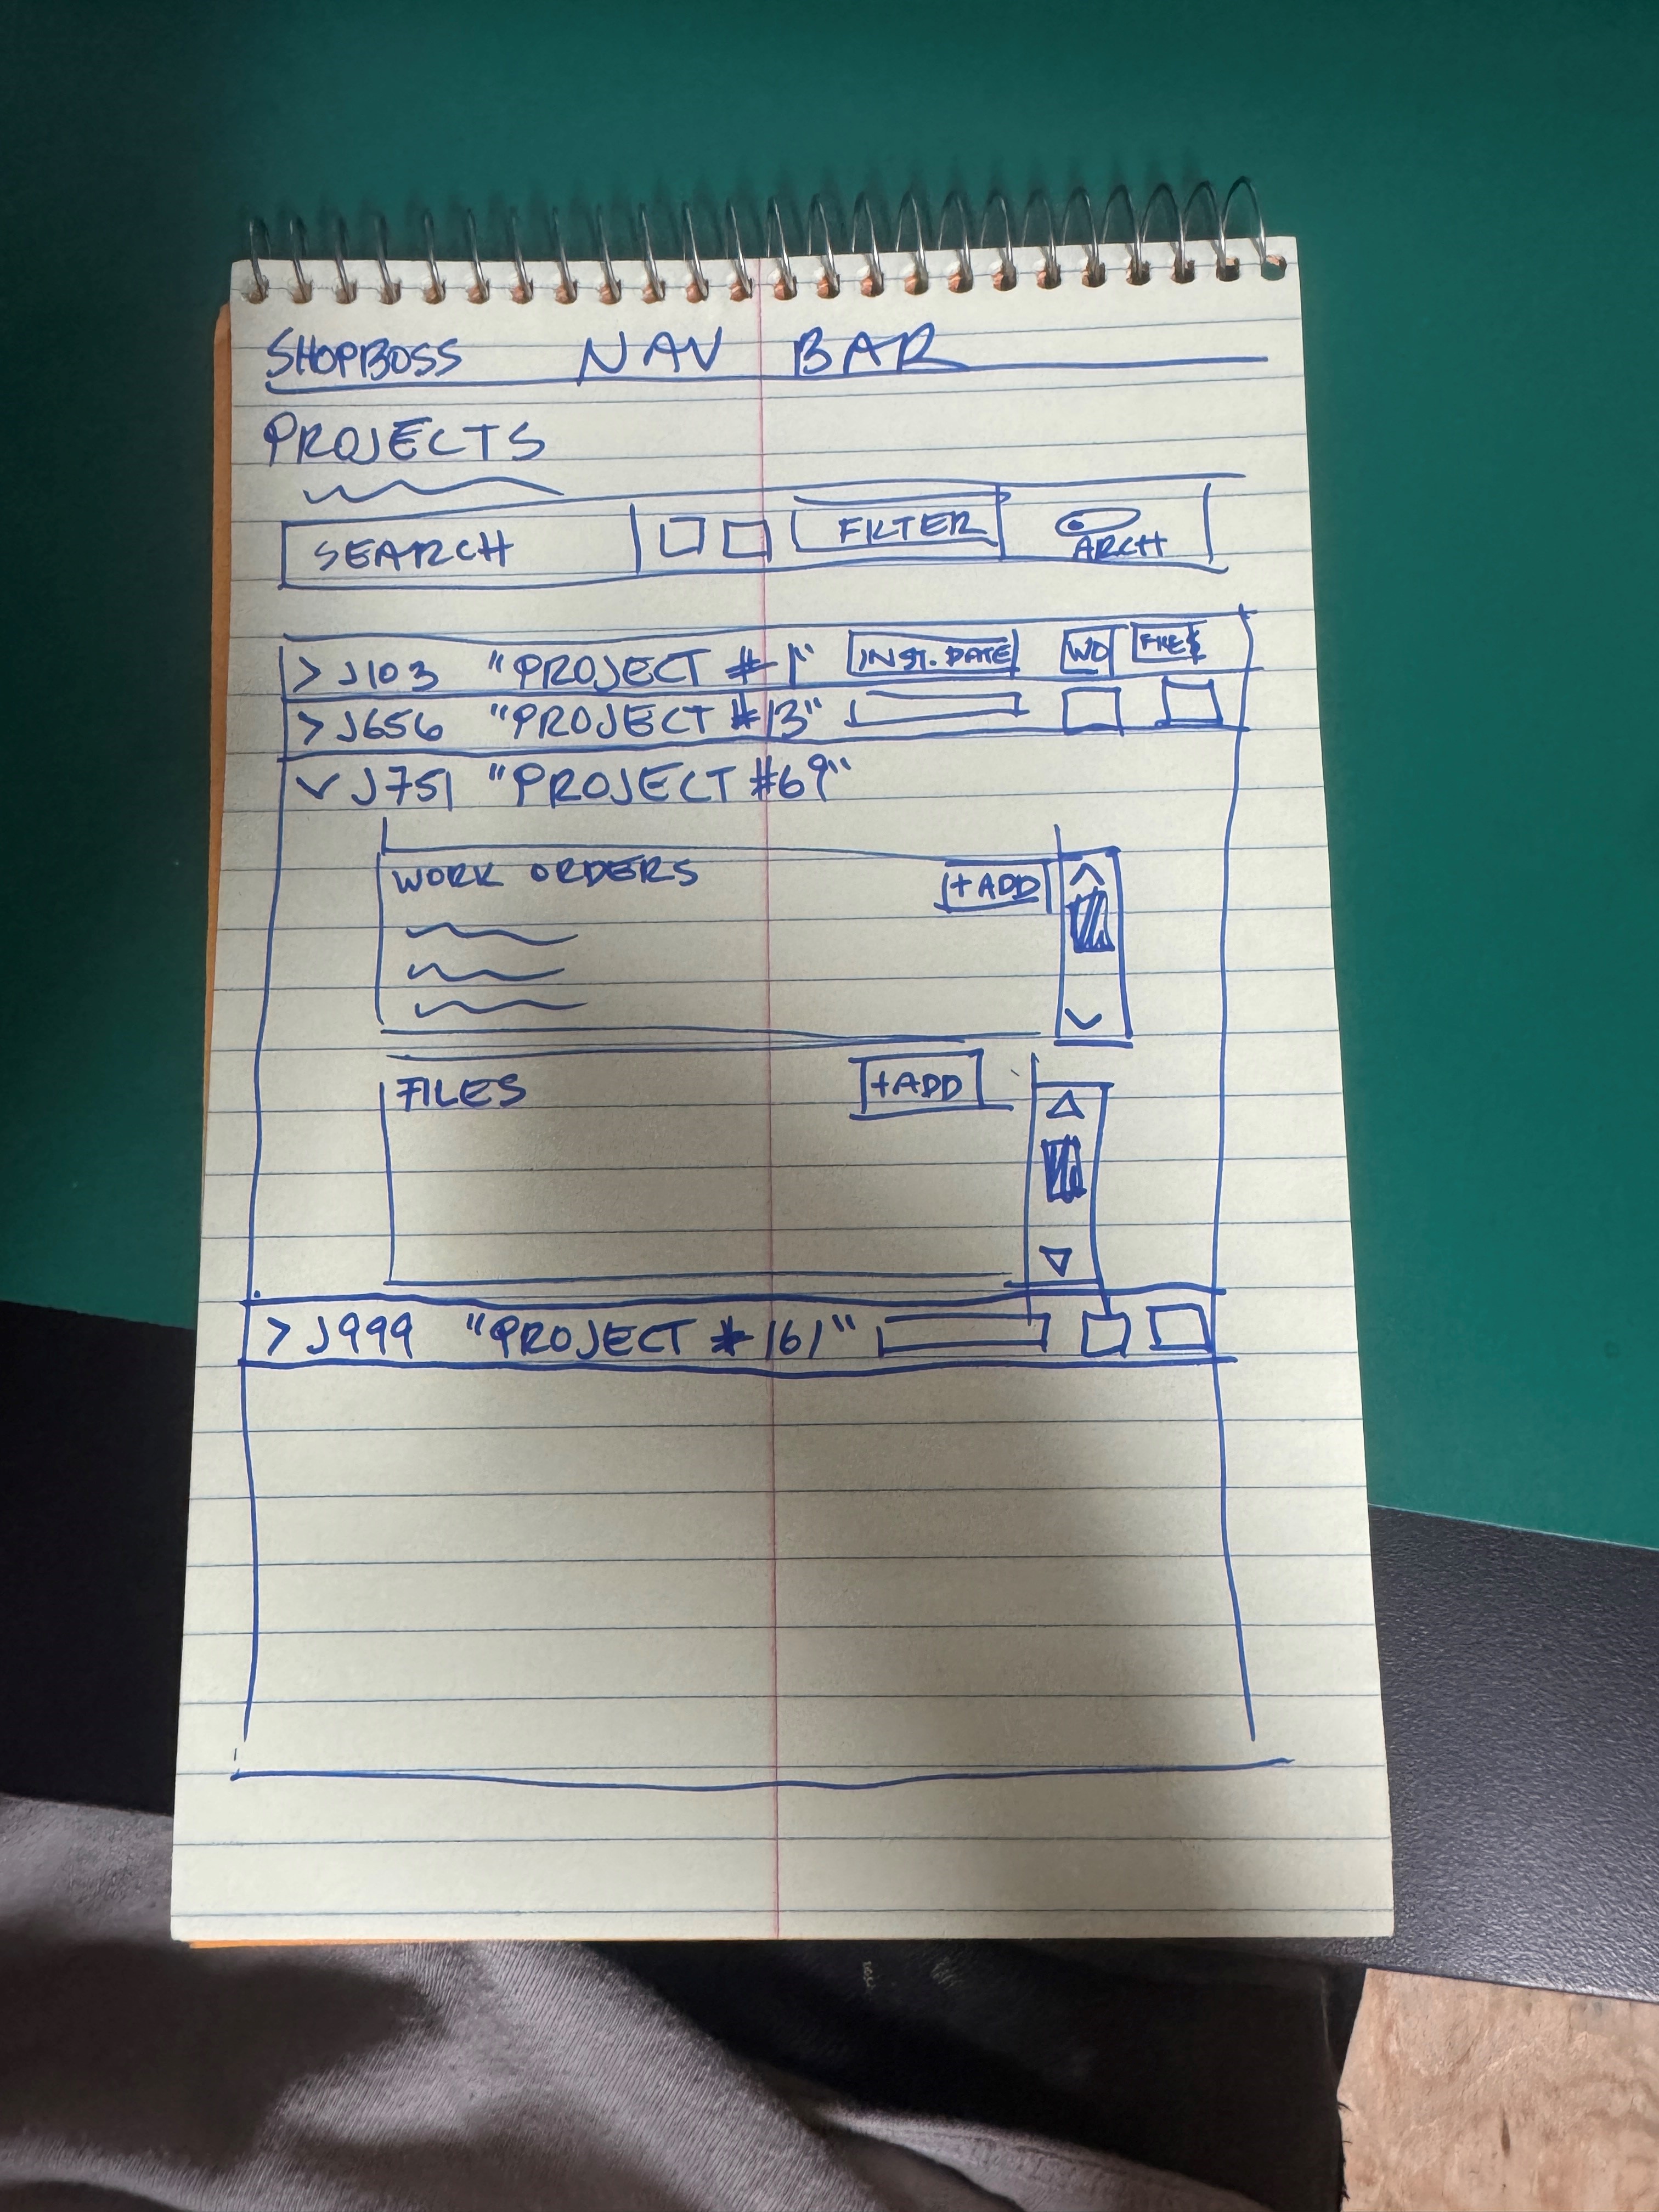 SHOPBOSS NAV BAR
PROJECTS
SEARCH FILTER ARCH
> J103 "PROJECT #1" INST. DATE WO FILES
> J656 "PROJECT #13"
v J751 "PROJECT #69"
WORK ORDERS +ADD
FILES +ADD
> J999 "PROJECT #161"